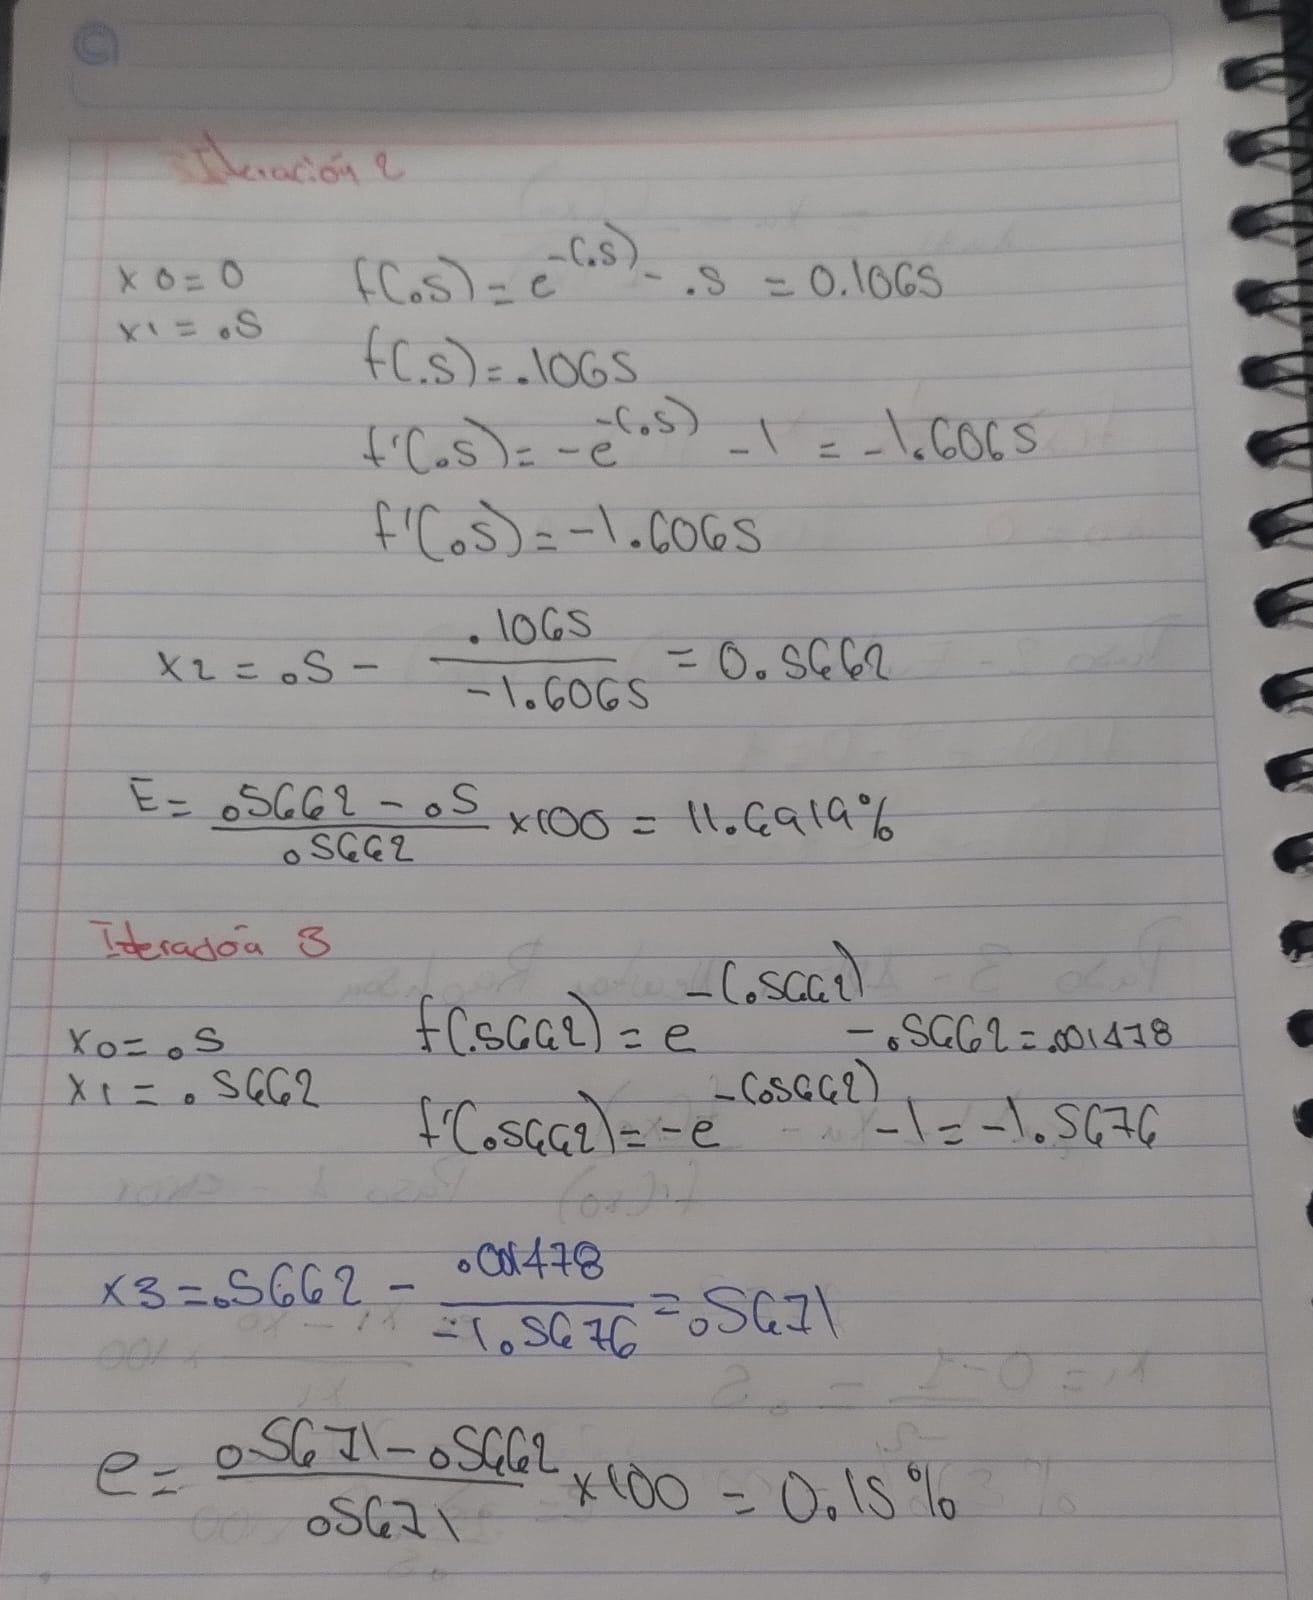 Iteración 2
x0=0 f(.5)=e^-(.5) - .5 = 0.1065
x1=.5
f(.5)=.1065
f'(.5)=-e^-(.5) -1 = -1.6065
f'(.5)=-1.6065
x2=.5- .1065/-1.6065 = 0.5662
E= .5662-.5/.5662 x100 = 11.6919%
Iteración 3
x0=.5 f(.5662)=e^-(.5662) -.5662=.001478
x1=.5662 f'(.5662)=-e^-(.5662) -1=-1.5676
x3=.5662 - .001478/-1.5676 =.5671
e= .5671-.5662/.5671 x100 = 0.15%